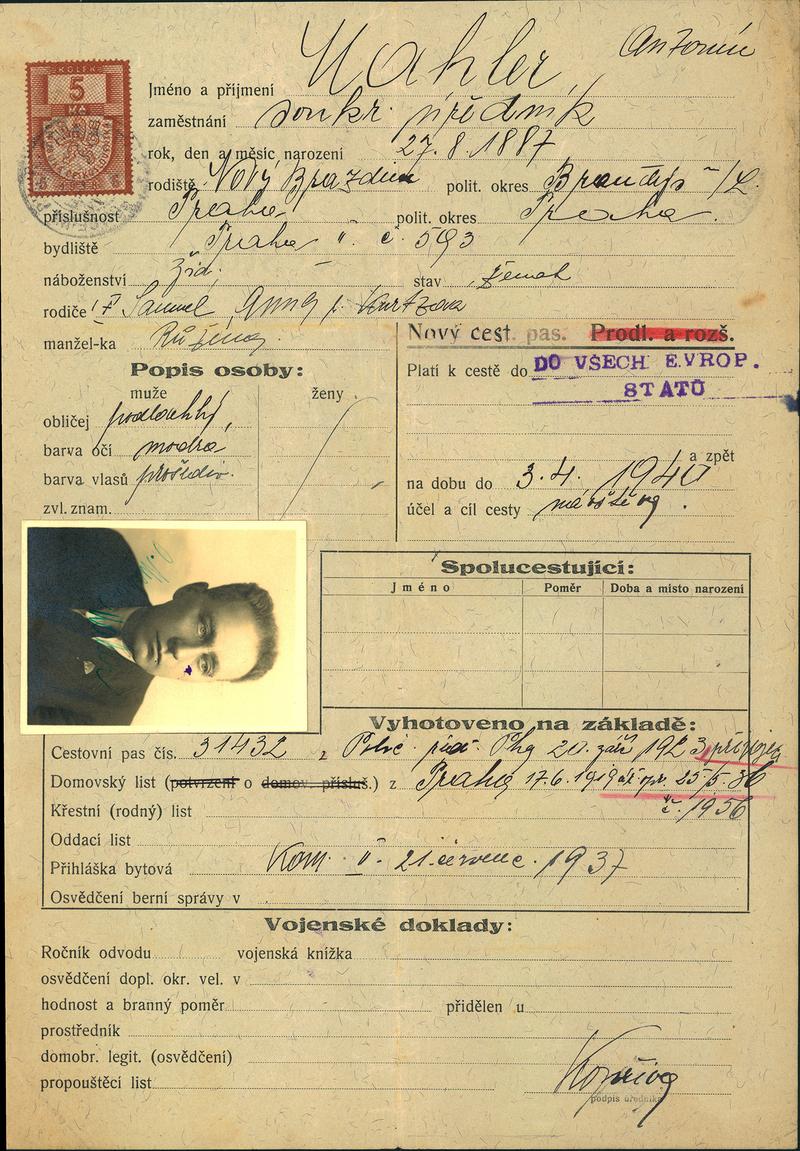 KOLEK
5
Kč
Mahler Antonín
Jméno a příjmení
zaměstnání soukr. úředník
rok, den a měsíc narození 27.8.1887
rodiště Nový Brázdim polit. okres Brandýs n/L.
příslušnost Praha polit. okres Praha.
bydliště Praha II č. 593
náboženství žid. stav ženat
rodiče Samuel, Anna r. Kurtzova
manžel-ka Růžena
Nový cest. pas. Prodl. a rozš.
Popis osoby:
Platí k cestě do DO VŠECH EVROP.
STATŮ
muže ženy
obličej podlouhlý,
barva očí modrá
barva vlasů prošediv.
zvl. znam.
a zpět
na dobu do 3.4. 1940
účel a cíl cesty návštěvy.
Spolucestující:
Jméno Poměr Doba a místo narození
Vyhotoveno na základě:
Cestovní pas čís. 31432 z Polic. řed. Phg 20. září 1923
Domovský list (potvrzení o domov. přísluš.) z Praha 17.6.1919 25/5.36
Křestní (rodný) list č. 1956
Oddací list
Přihláška bytová Kom. II. 21. červenc. 1937
Osvědčení berní správy v
Vojenské doklady:
Ročník odvodu vojenská knížka
osvědčení dopl. okr. vel. v
hodnost a branný poměr přidělen u
prostředník
domobr. legit. (osvědčení)
propouštěcí list
podpis úředníka